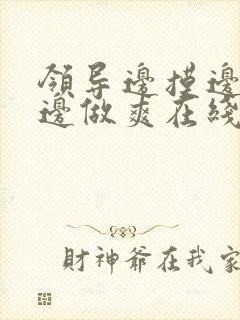 領导邊摸邊
邊做爽在綫
財神爺在我家